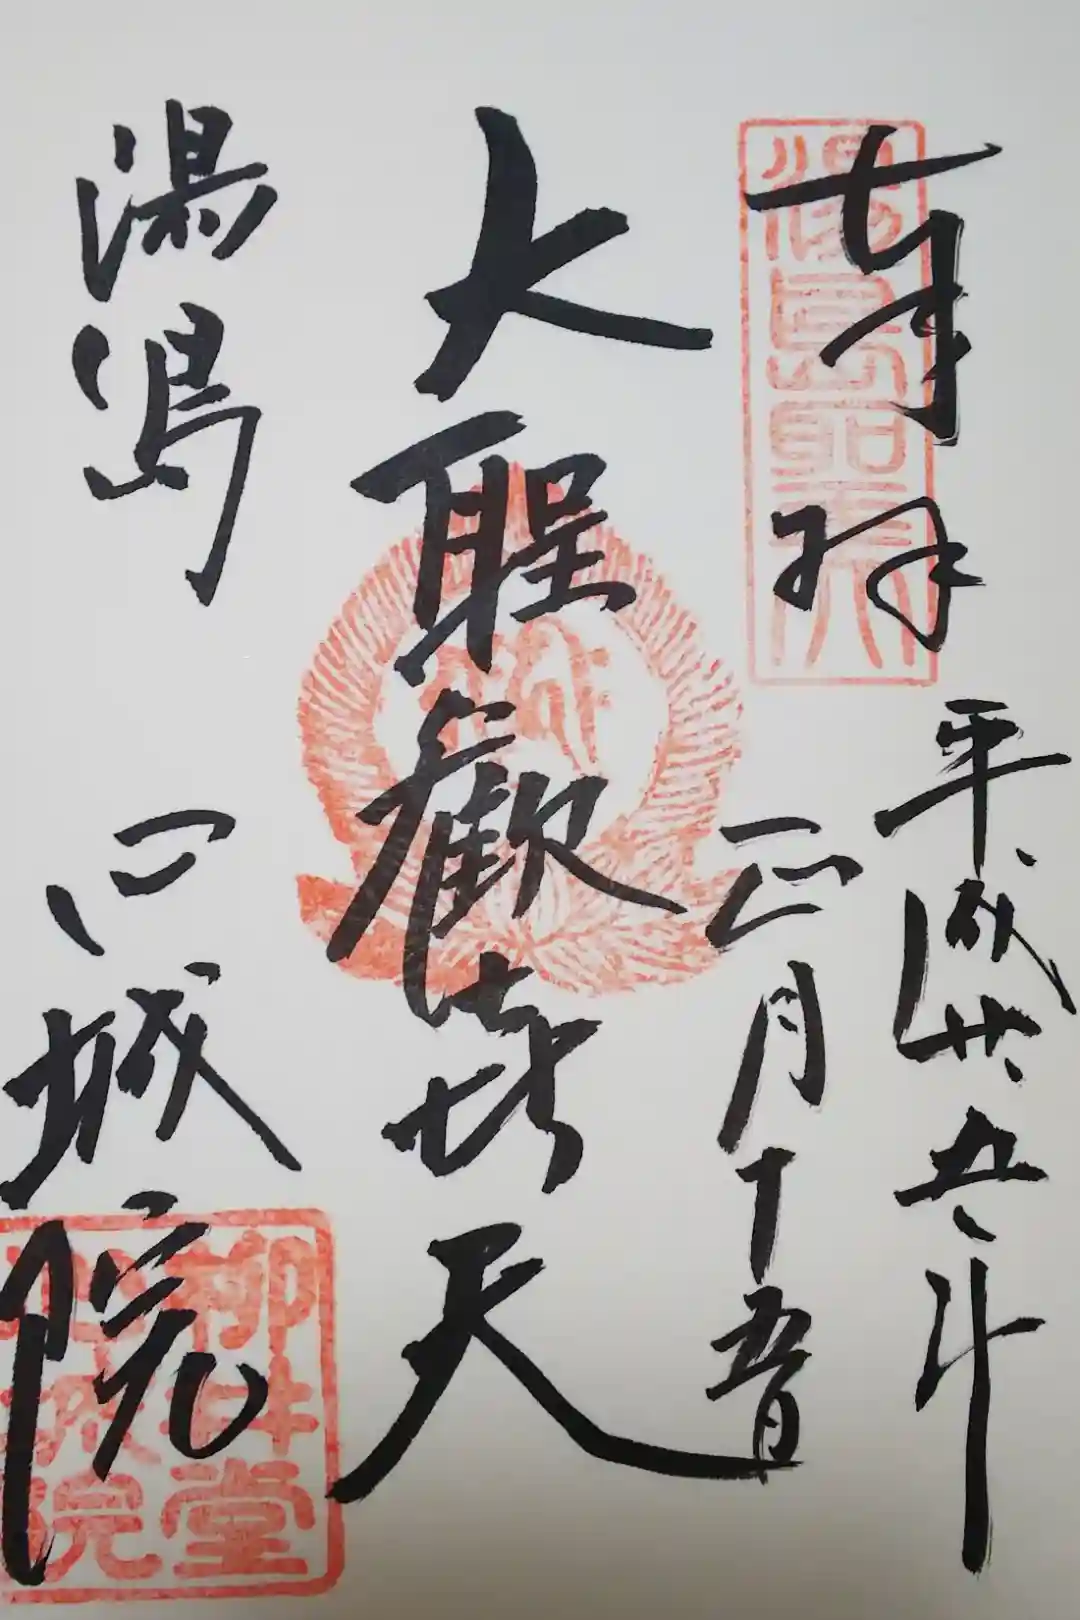 奉拝
湯島聖天
平成廿五年
正月十五日
大聖歓喜天
湯島
心城院
柳井堂
心城院